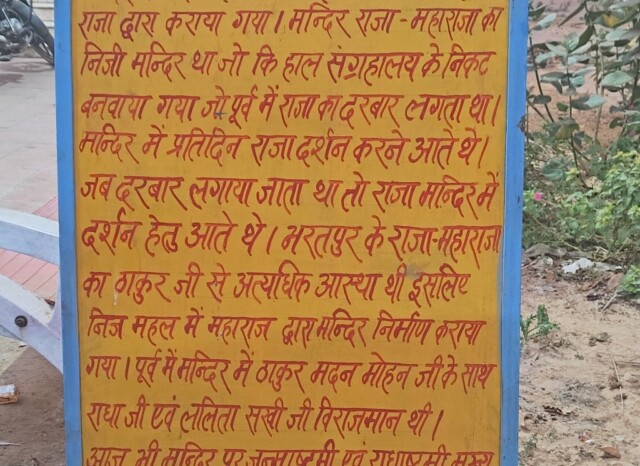 राजा द्वारा कराया गया। मन्दिर राजा-महाराजा का
निजी मन्दिर था जो कि हाल संग्रहालय के निकट
बनवाया गया जो पूर्व में राजा का दरबार लगता था।
मन्दिर में प्रतिदिन राजा दर्शन करने आते थे।
जब दरबार लगाया जाता था तो राजा मन्दिर में
दर्शन हेतु आते थे। भरतपुर के राजा-महाराजा
का ठाकुर जी से अत्यधिक आस्था थी इसलिए
निज महल में महाराज द्वारा मन्दिर निर्माण कराया
गया। पूर्व में मन्दिर में ठाकुर मदन मोहन जी के साथ
राधा जी एवं ललिता सखी जी विराजमान थी।
आज भी मन्दिर पर जन्माष्टमी एवं राधाष्टमी मुख्य